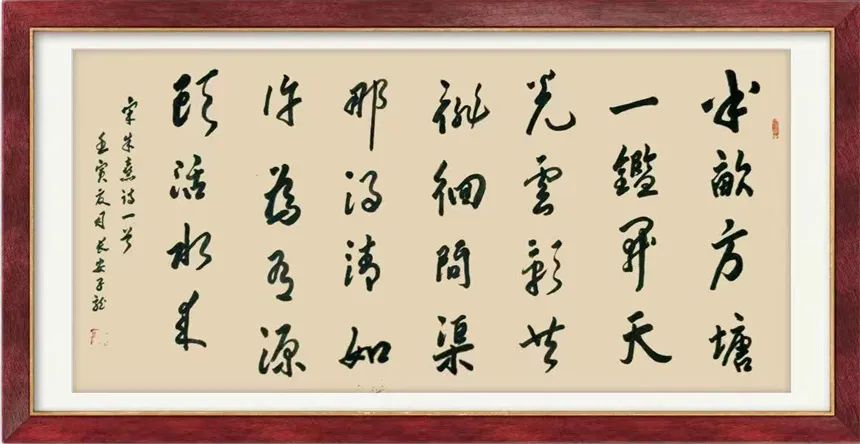 半畝方塘
一鑑開天
光雲影共
徘徊問渠
那得清如
許為有源
頭活水來
宋朱熹詩一首
壬寅夏月長安子龍